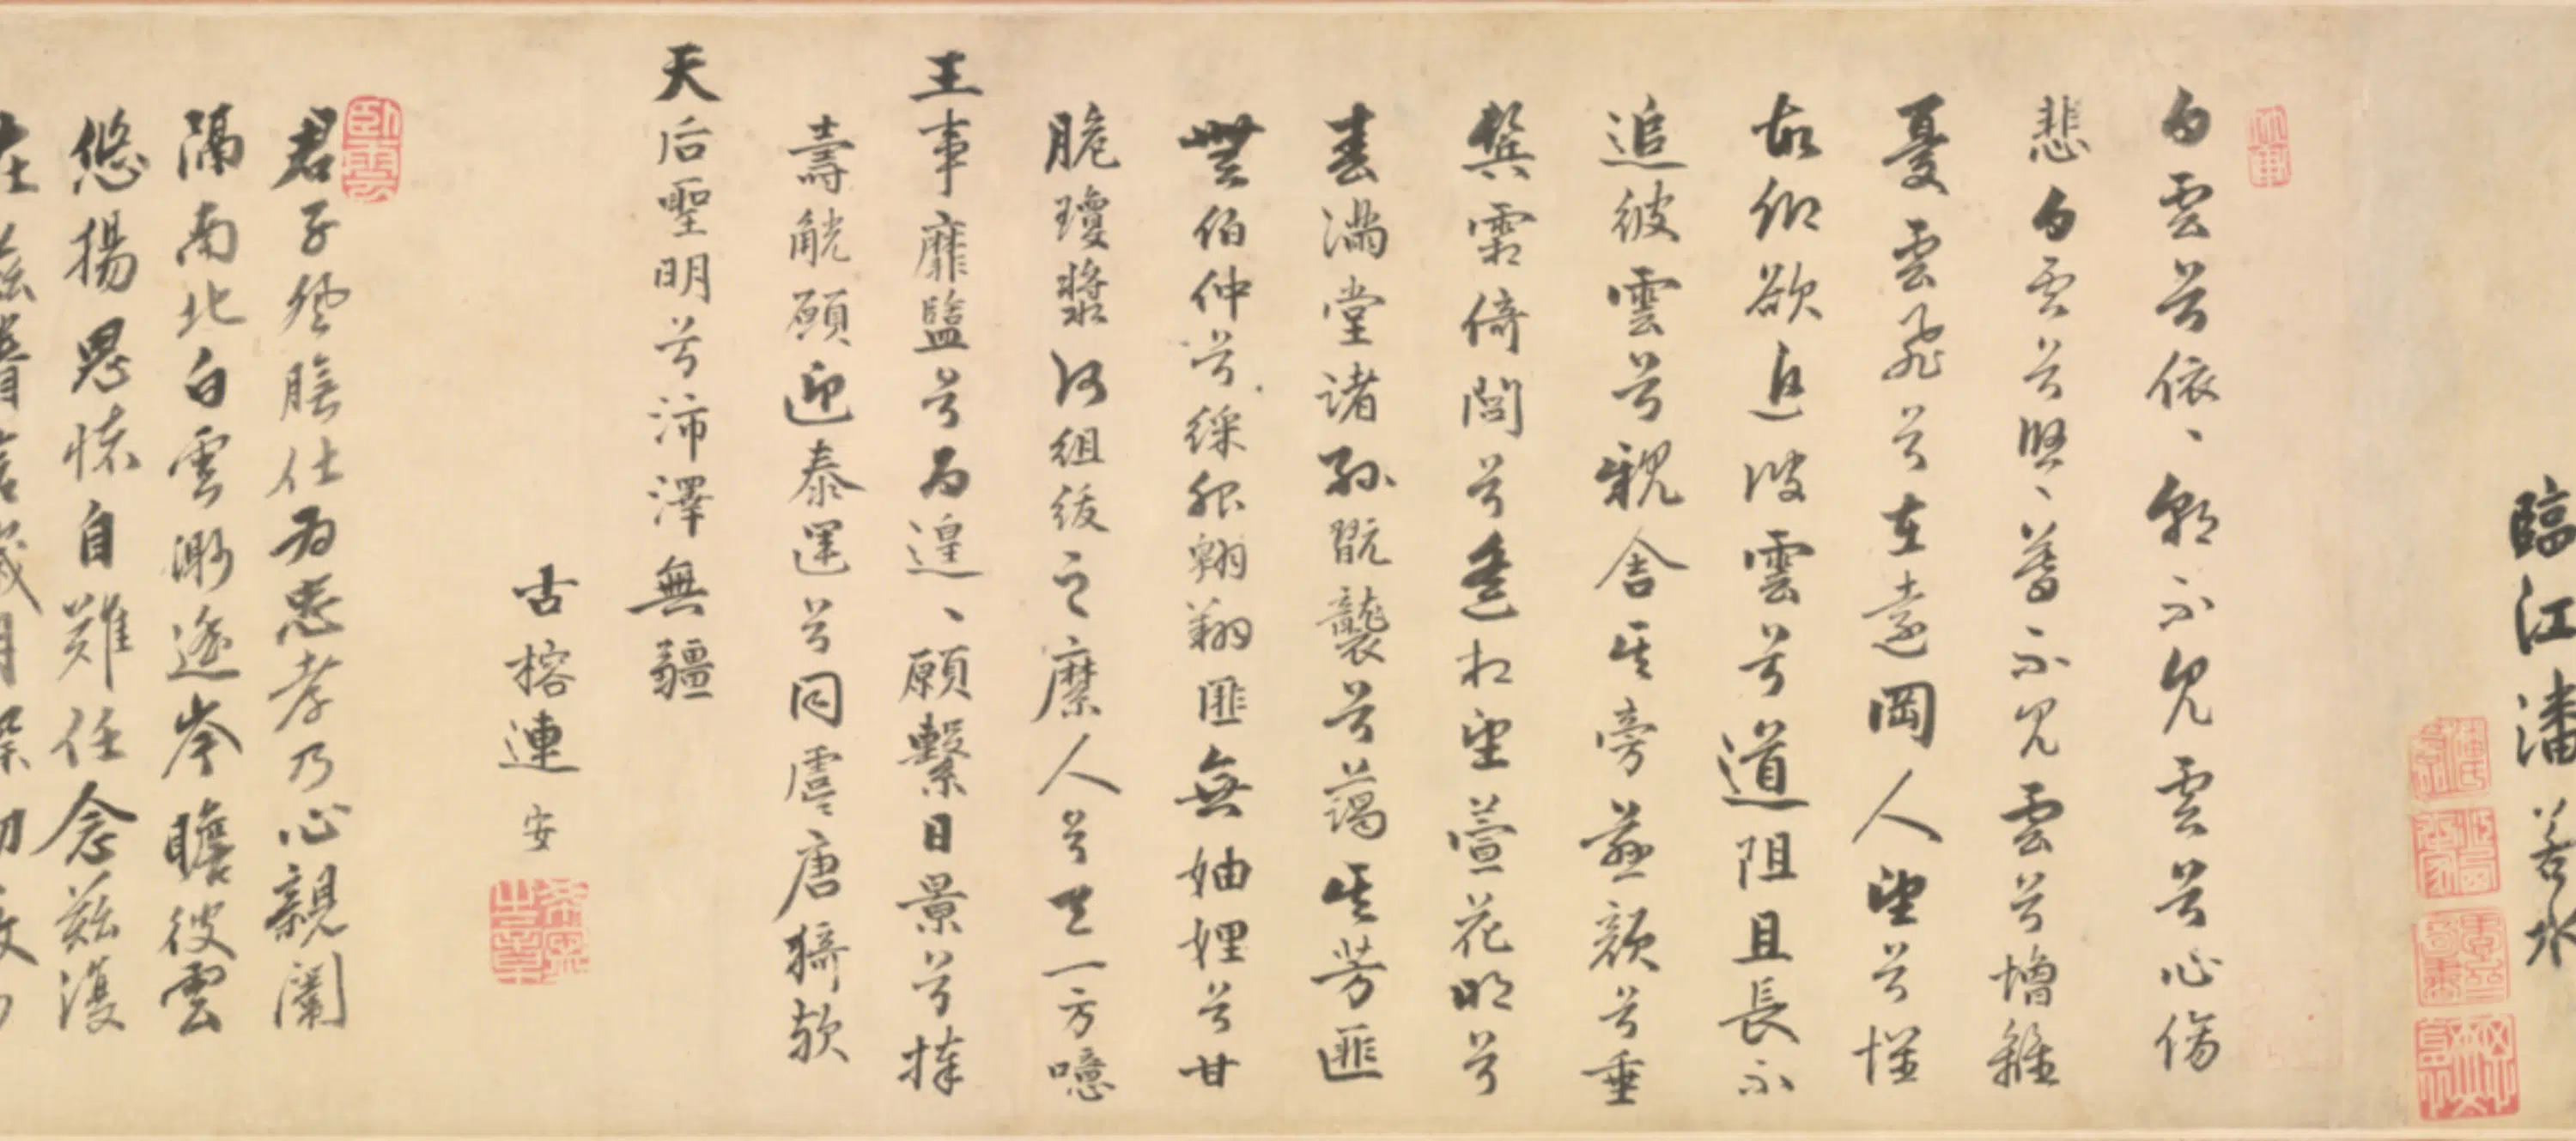 臨江潘若水
白雲兮依、朝不見雲兮心傷
悲白雲兮興、暮不見雲兮增離
憂雲飛兮在遠岡人望兮懷
故鄉欲追彼雲兮道阻且長不
追彼雲兮親舍其旁慈顏兮垂
鬢霜倚閭兮遙相望萱花明兮
春滿堂諸孫翫襲兮藹其芳匪
無伯仲兮綵服翱翔匪無妯娌兮甘
脆瓊漿何組綬之縻人兮天一方噫
王事靡盬兮為遑、願繫日景兮捧
壽觥願迎泰運兮同虞唐猗歟
天后聖明兮沛澤無疆
古榕連安
君子登膴仕為忠孝乃心親闈
隔南北白雲渺遙岑瞻彼雲
悠揚思懷自難任念茲復